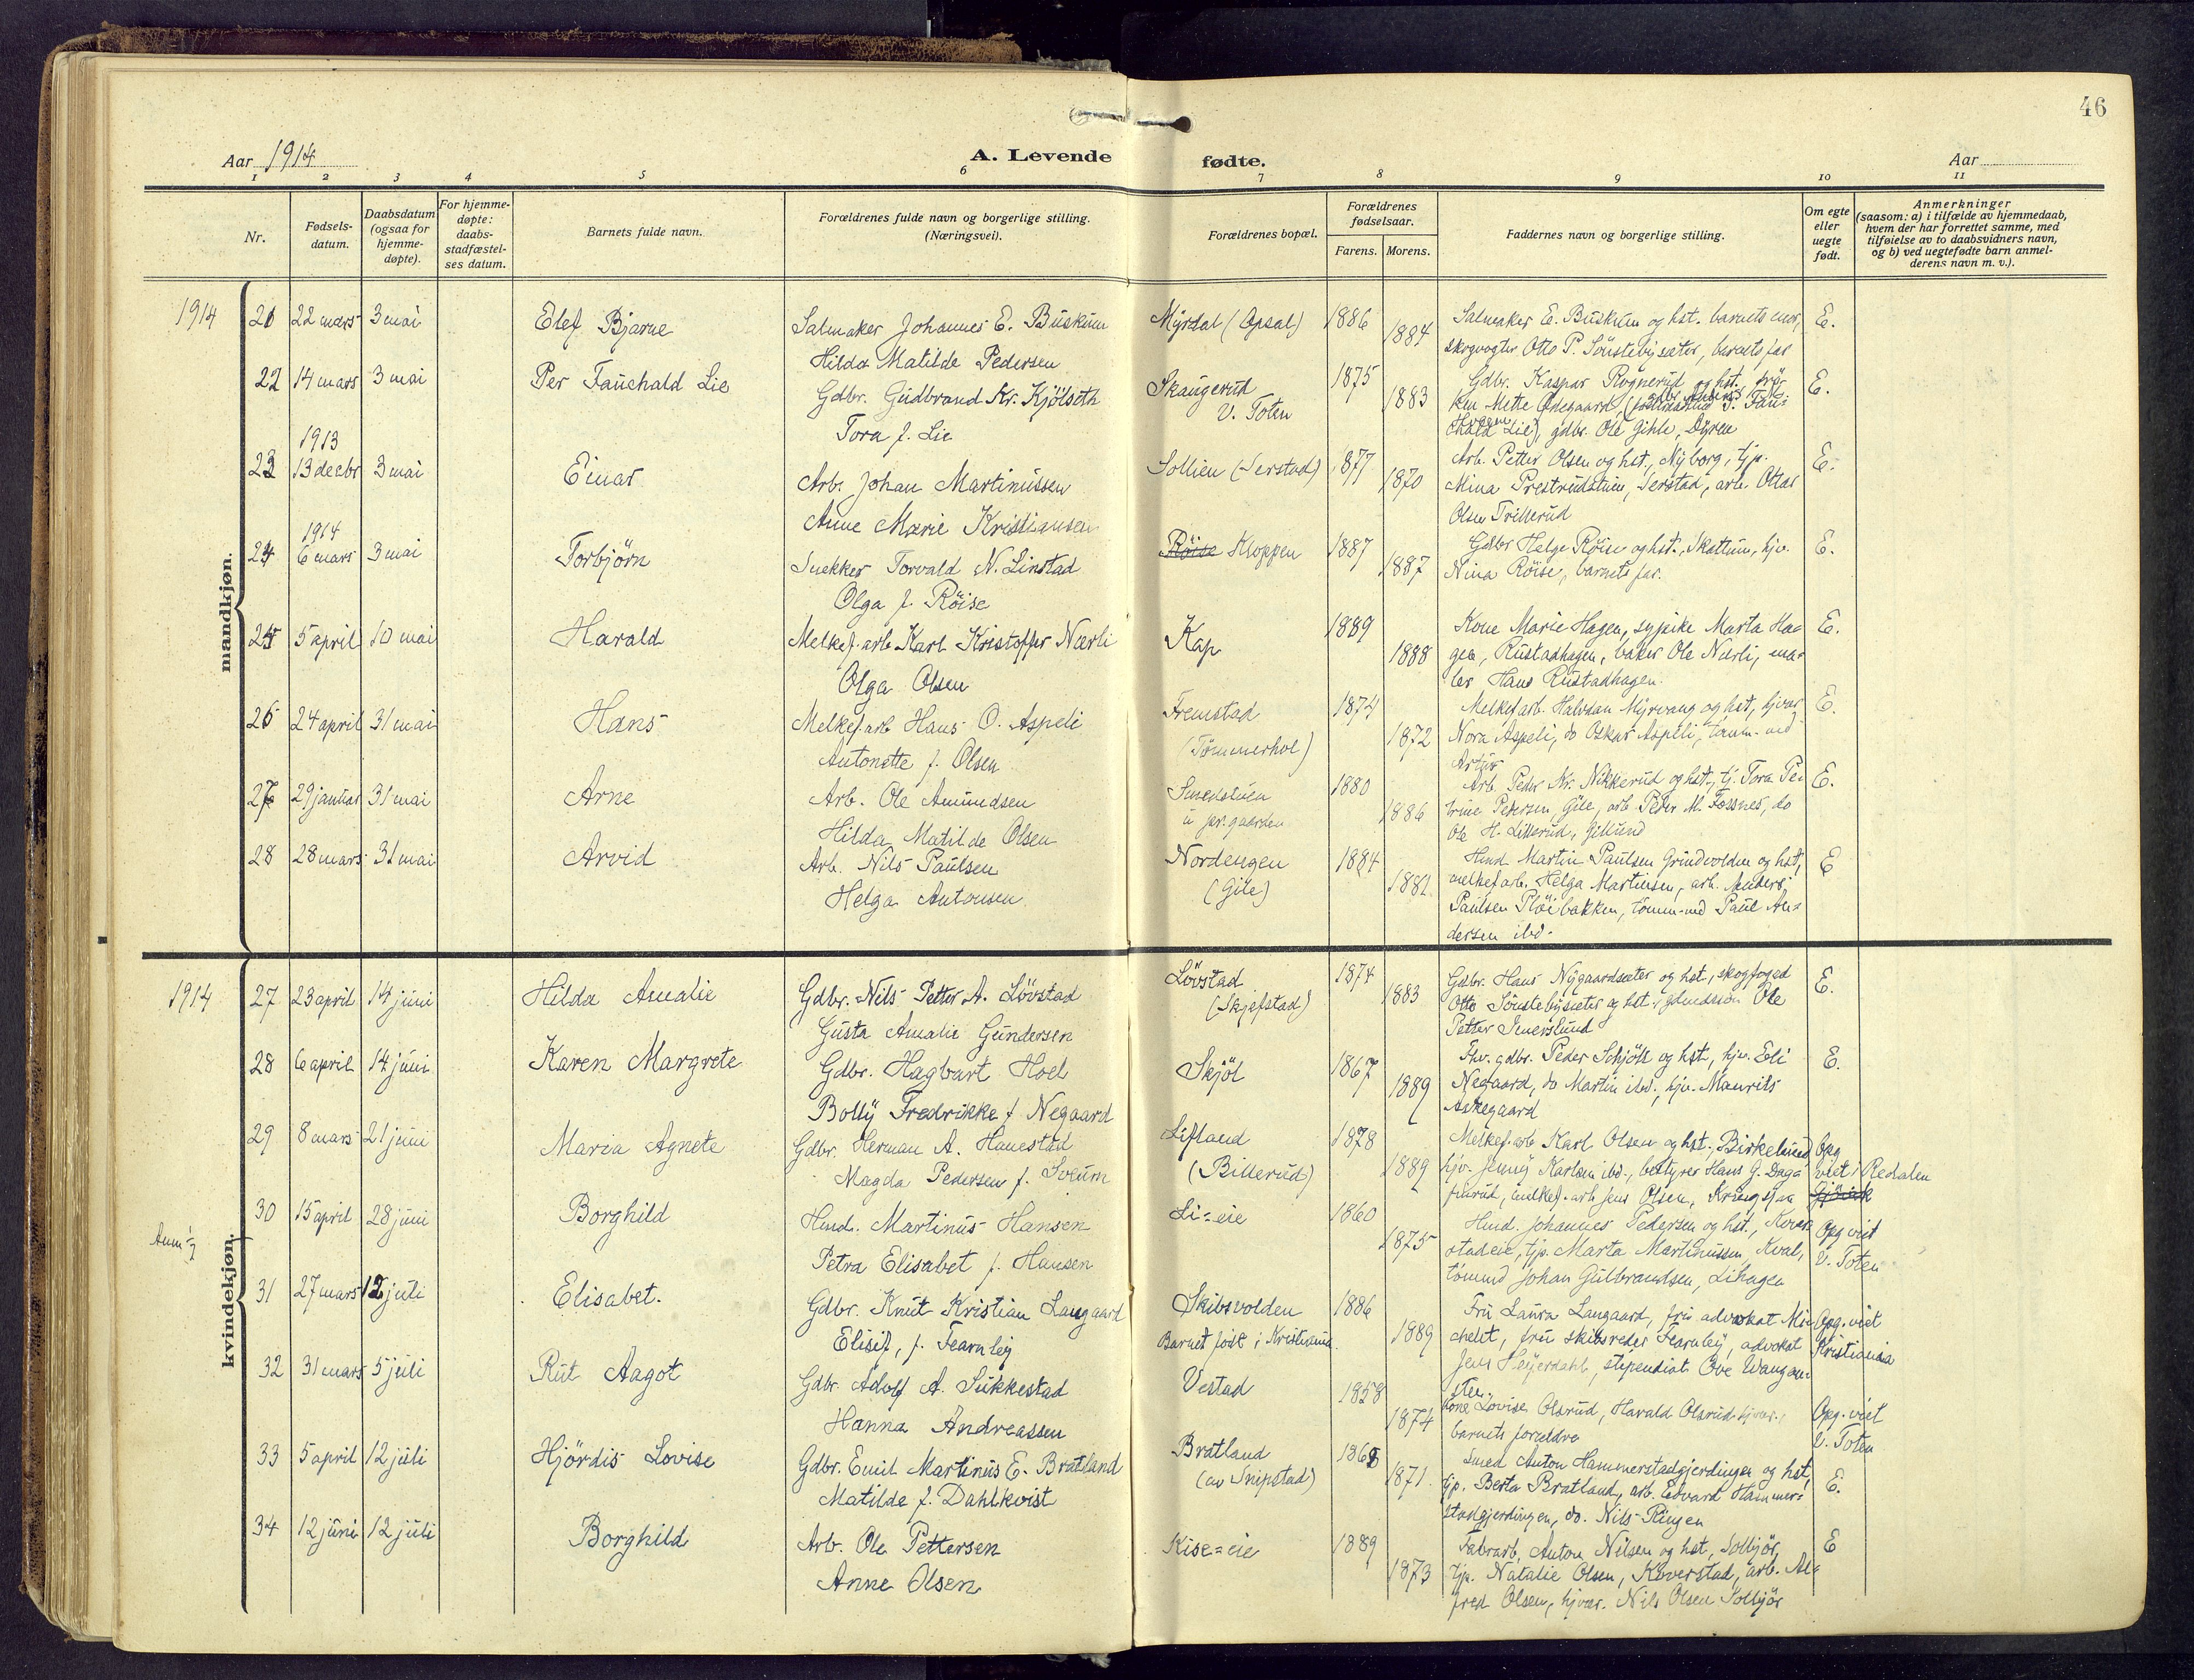 46
Aar 1914
A. Levende fødte.
Aar
1 2 3 4 5 6 7 8 9 10 11
Nr.
Fødsels-
datum.
Daabsdatum
(ogsaa for
hjemme-
døpte).
For hjemme-
døpte:
daabs-
stadfæstel-
ses datum.
Barnets fulde navn.
Forældrenes fulde navn og borgerlige stilling.
(Næringsvei).
Forældrenes bopæl.
Forældrenes
fødselsaar.
Farens. Morens.
Faddernes navn og borgerlige stilling.
Om egte
eller
uegte
født.
Anmerkninger
(saasom: a) i tilfælde av hjemmedaab,
hvem der har forrettet samme, med
tilføielse av to daabsvidners navn,
og b) ved uegtefødte barn anmel-
derens navn m. v.).
mandkjøn.
1914 21 22 mars 3 mai Elef Bjarne Salmaker Johannes E. Buskum Myrdal (Opsal) 1886 Salmaker E. Buskum og hst. barnets mor, E.
Hilda Matilde Pedersen 1884 skogvogter Otto P. Sönstebysæter, barnets far
22 14 mars 3 mai Per Fauchald Lie Gdbr. Gudbrand Kr. Kjölseth Skaugerud 1875 Gdbr. Kaspar Rognerud og hst. frö- E.
Tora f. Lie V. Toten 1883 ken Mette Ödegaard,
chald Lie), gdbr. Ole Gihle, Dyren
1913
23 13 decbr 3 mai Einar Arb. Johan Martinussen Sollien (Serstad) 1877 Arb. Petter Olsen og hst., Nyborg, tjp. E.
Anne Marie Kristiansen 1870 Mina Prestrudstuen, Serstad, arb. Ottar
Olsen Trillerud
1914
24 6 mars 3 mai Torbjörn Snekker Torvald N. Linstad Röise Kloppen 1887 Gdbr Helge Röise og hst., Skattum, hjv. E.
Olga f. Röise 1887 Nina Röise, barnets far.
25 5 april 10 mai Harald Melkef. arb Karl Kristoffer Nærli Kap 1889 Kone Marie Hagen, sypike Marta Ha- E.
Olga Olsen 1888 gen, Rustadhagen, baker Ole Nærli, ma-
ler Hans Rustadhagen.
26 24 april 31 mai Hans Melkef. arb Hans O. Aspeli Fremstad 1874 Melkef. arb. Halvdan Myrvang og hst, hjvar E.
Antonette f. Olsen (Tömmerhol) 1872 Nora Aspeli, do Oskar Aspeli, tömm.-md

27 29 januar 31 mai Arne Arb. Ole Amundsen Smedstuen 1880 Arb. Peder Kr. Nikkerud og hst., tj. Tora Pe- E.
Hilda Matilde Olsen u prs.gaarden 1886 trine Pedersen Gile, arb. Peder M. Fossnes, do
Ole H. Lillerud, Gillund
28 28 mars 31 mai Arvid Arb. Nils Paulsen Nordengen 1884 Hmd Martin Paulsen Grindvolden og hst, E
Helga Antonsen (Gile) 1881 melkef arb. Helga Martinsen, arb. Anders
Paulsen Plöibakken, tömm-md Paul An-
dersen ibd.
kvindekjøn.
1914 27 23 april 14 juni Hilda Amalie Gdbr. Nils Petter A. Lövstad Lövstad 1874 Gdbr. Hans Nygaardsæter og hst., skogfoged E.
Gusta Amalie Gundersen (Skjefstad) 1883 Otto Sönstebysæter og hst., gdmdssön Ole
Petter Evenslund
28 6 april 14 juni Karen Margrete Gdbr. Hagbart Hoel Skjöl 1867 Fhv. gdbr. Peder Schjöll og hst, hjv. Eli E.
Bolly Fredrikke f Negaard 1889 Negaard, do Martin ibd., hjv. Maurits
Askegaard
29 8 mars 21 juni Maria Agnete Gdbr. Herman A. Hanestad Lifland 1878 Melkef. arb Karl Olsen og hst., Birkelund Opg
Magda Pedersen f. Sveum (Billerud) 1889 hjv. Jenny Karlsen ibd., bestyrer Hans G. Daga- viet i Redalen
furud, melkef. arb Jens Olsen, Kringsjaa Gjövik
30 15 april 28 juni Borghild Hmd. Martinus Hansen Li-eie 1860 Hmd. Johannes Pedersen og hst., Kver- Opg viet
Petra Elisabet f. Hansen 1875 stadeie, tjp. Marta Martinussen, Kval, V. Toten
tömmd Johan Gulbrandsen, Lihagen
31 27 mars 12 juli Elisabet. Gdbr. Knut Kristian Langaard Skibsvolden 1886 Fru Laura Langaard, fru advokat Mi- Opg. viet
Elisif, f. Fearnley Barnet født i Kristiania. 1889 chelet, fru skibsreder Fearnley, advokat Kristiania
Jens Heyerdahl, stipendiat Ove Wangen-
sten
32 31 mars 5 juli Rut Aagot Gdbr. Adolf A. Sukkestad Vestad 1858 Kone Lovise Olsrud, Harald Olsrud hjvar., Opg. viet
Hanna Andreassen 1874 barnets forældre V. Toten
33 5 april 12 juli Hjördis Lovise Gdbr. Emil Martinus E. Bratland Bratland 1868 Smed Anton Hammerstadgjerdingen og hst, E.
Matilde f. Dahlkvist (av Snipstad) 1871 tjp. Berta Bratland, arb. Edvard Hammer-
stadgjerdingen, do. Nils Ringen
34 12 juni 12 juli Borghild Arb. Ole Pettersen Kise-eie 1889 Fabrarb. Anton Nilsen og hst, Solbjör, E
Anne Olsen 1873 tjp. Natalie Olsen, Kverstad, arb. Al-
fred Olsen, hjvar. Nils Olsen Solbjör